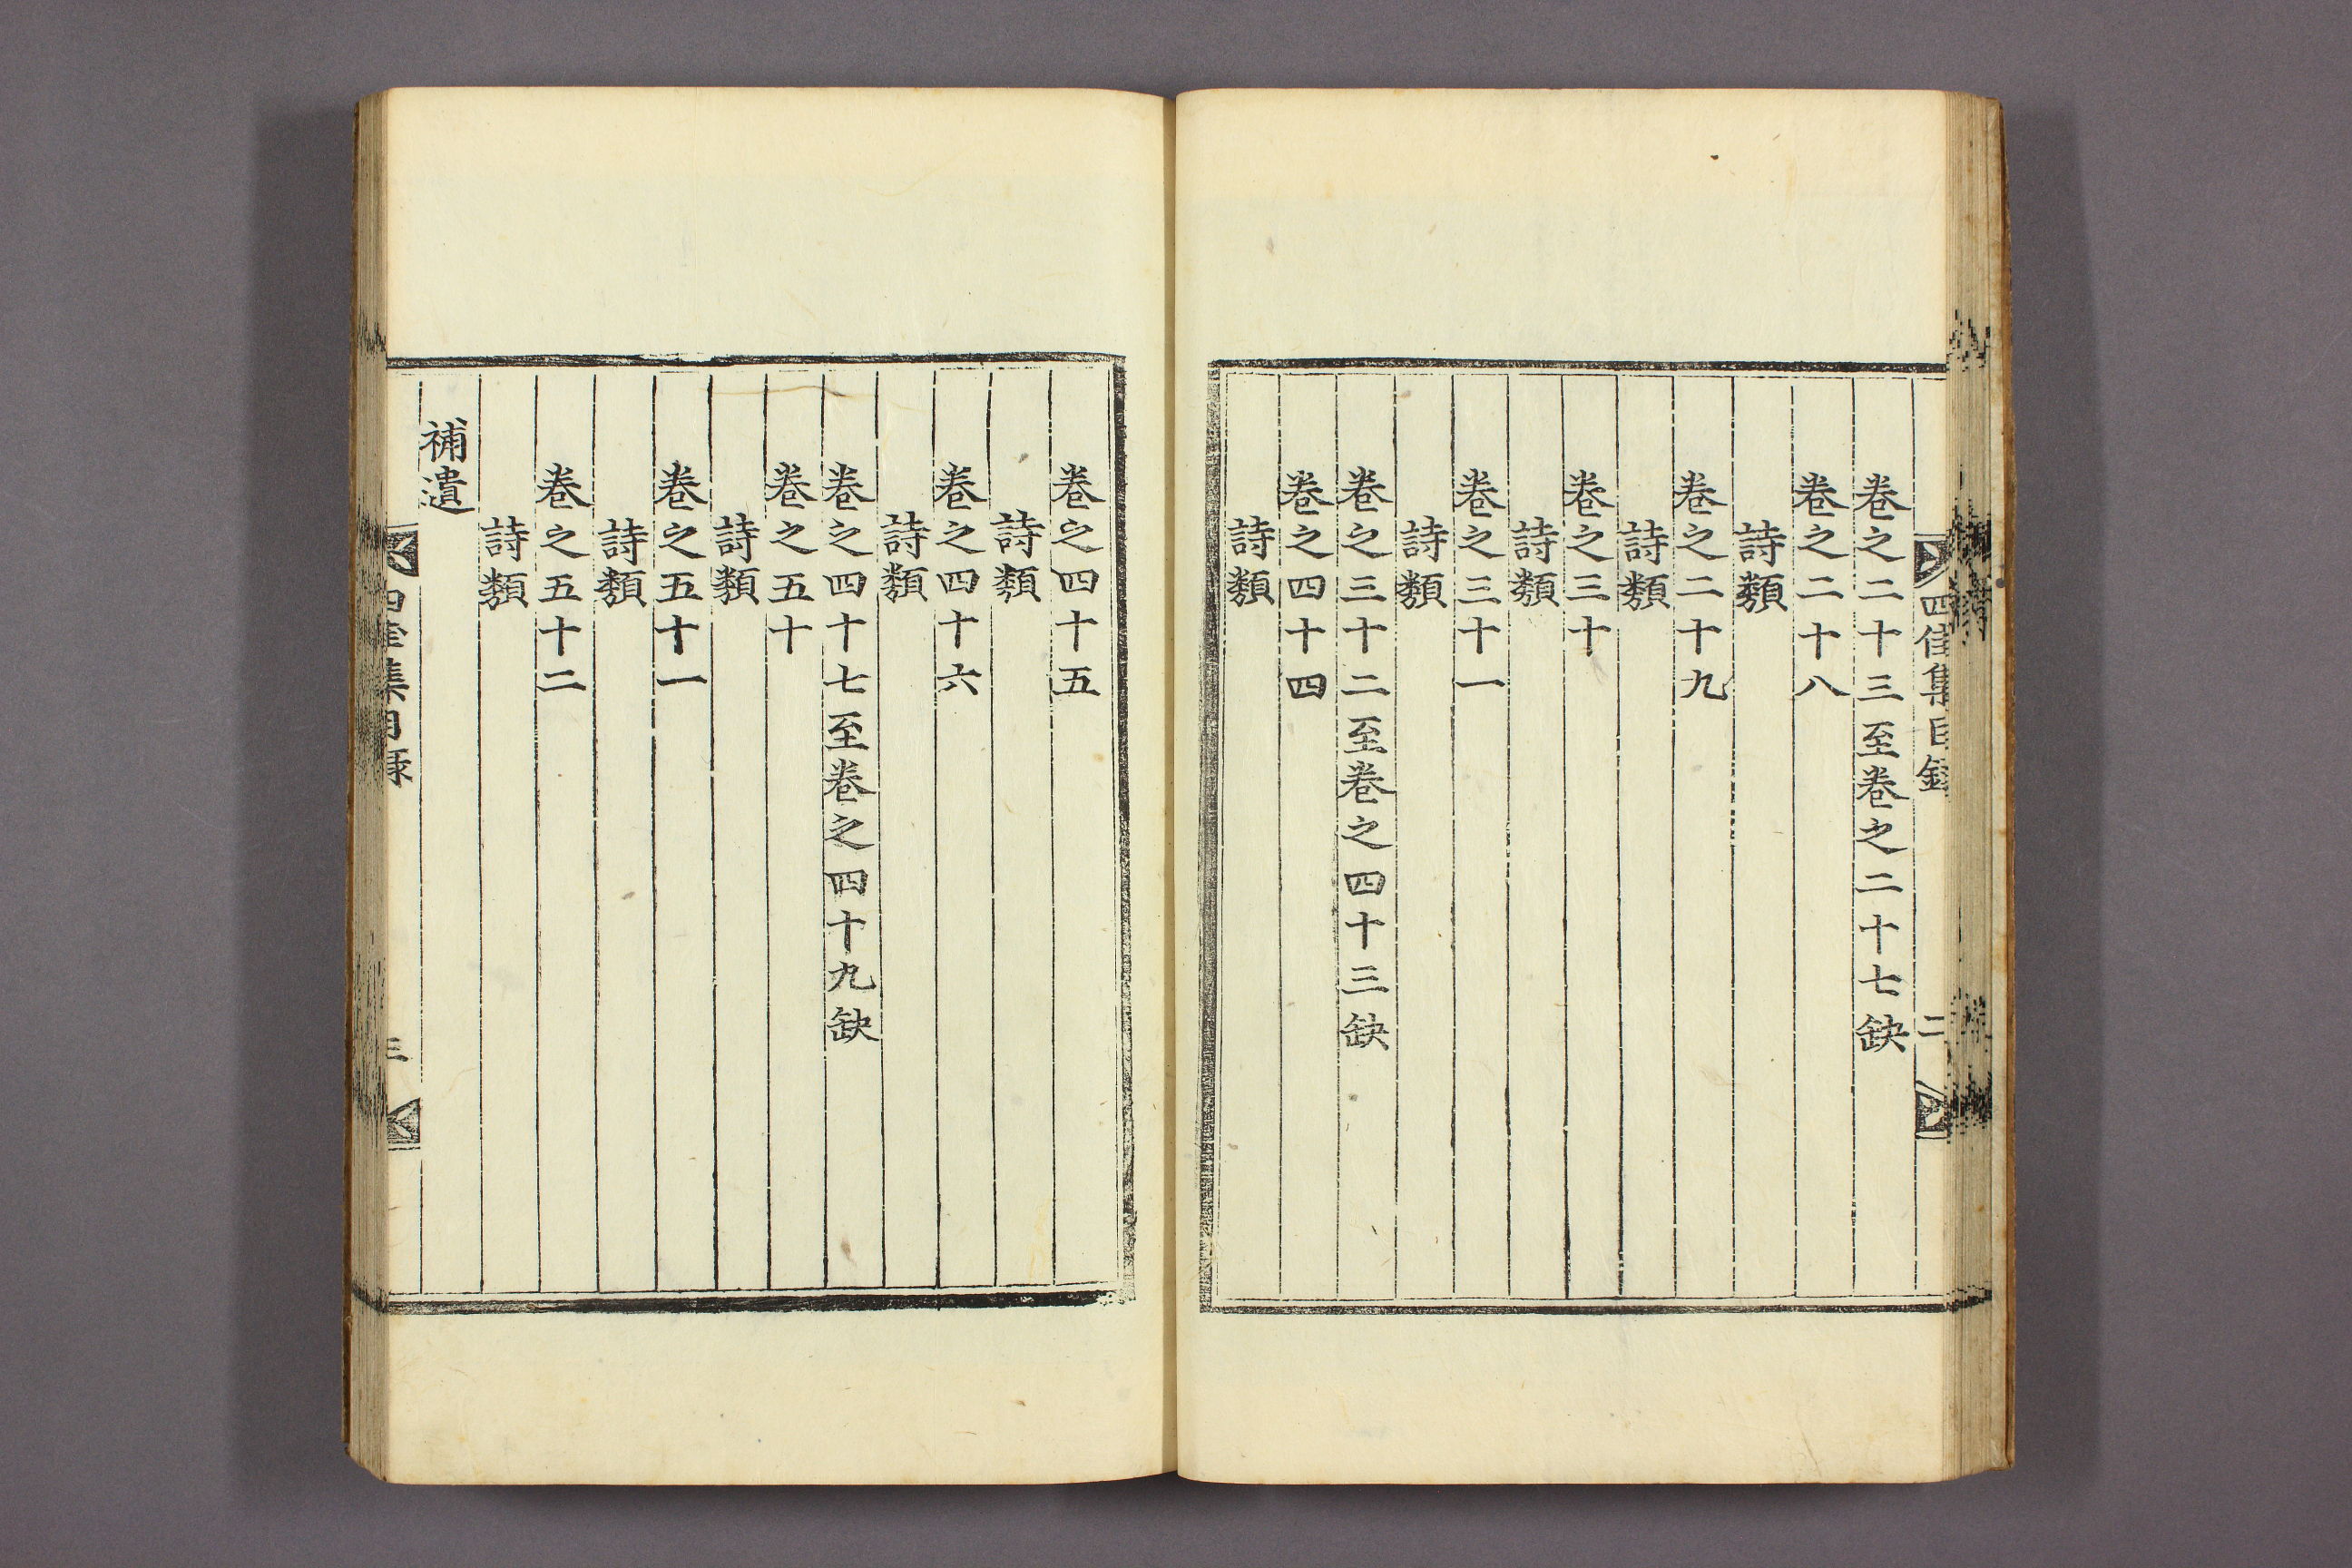 四佳集目錄 二
卷之二十三至卷之二十七缺
卷之二十八
詩類
卷之二十九
詩類
卷之三十
詩類
卷之三十一
詩類
卷之三十二至卷之四十三缺
卷之四十四
詩類
卷之四十五
詩類
卷之四十六
詩類
卷之四十七至卷之四十九缺
卷之五十
詩類
卷之五十一
詩類
卷之五十二
詩類
補遺
四佳集目錄 三